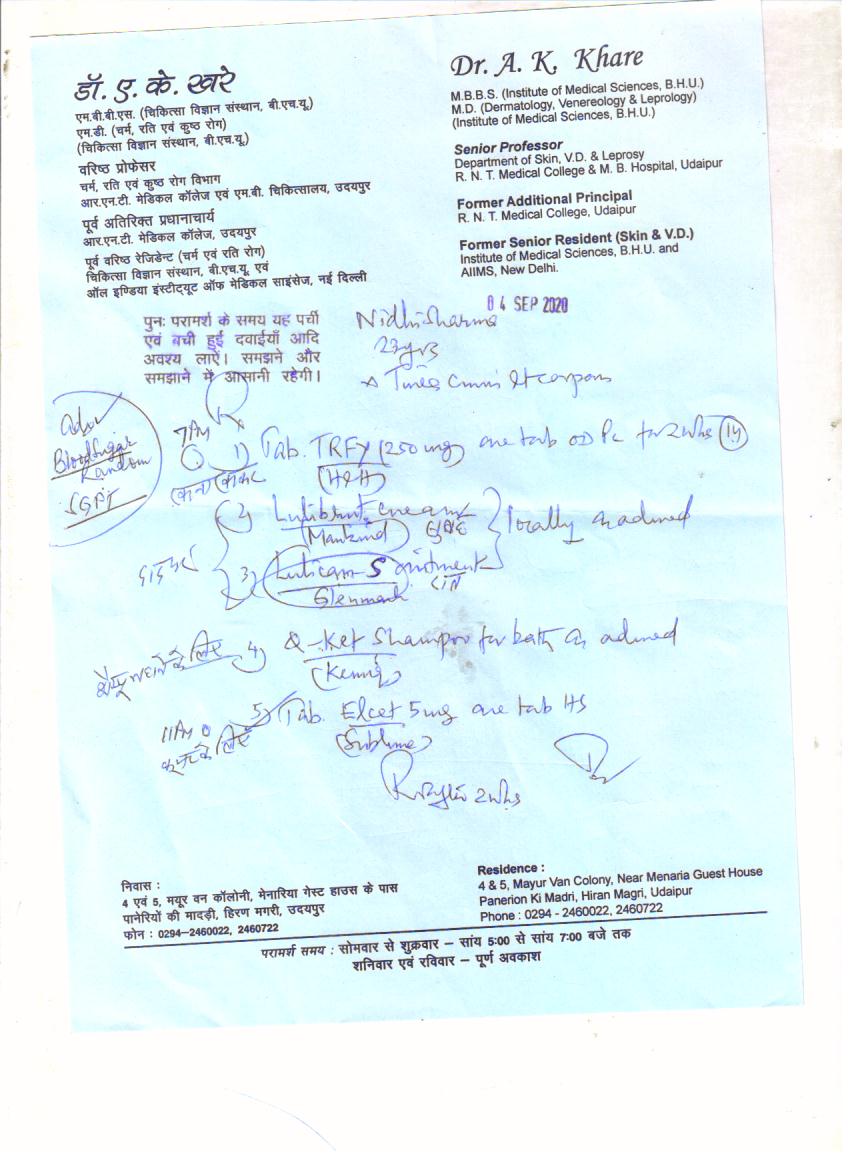 डॉ. ए. के. खरे
एम.बी.बी.एस. (चिकित्सा विज्ञान संस्थान, बी.एच.यू.)
एम.डी. (चर्म, रति एवं कुष्ठ रोग)
(चिकित्सा विज्ञान संस्थान, बी.एच.यू.)
वरिष्ठ प्रोफेसर
चर्म, रति एवं कुष्ठ रोग विभाग
आर.एन.टी. मेडिकल कॉलेज एवं एम.बी. चिकित्सालय, उदयपुर
पूर्व अतिरिक्त प्रधानाचार्य
आर.एन.टी. मेडिकल कॉलेज, उदयपुर
पूर्व वरिष्ठ रेजिडेन्ट (चर्म एवं रति रोग)
चिकित्सा विज्ञान संस्थान, बी.एच.यू. एवं
ऑल इण्डिया इंस्टीट्यूट ऑफ मेडिकल साइंसेज, नई दिल्ली
Dr. A. K. Khare
M.B.B.S. (Institute of Medical Sciences, B.H.U.)
M.D. (Dermatology, Venereology & Leprology)
(Institute of Medical Sciences, B.H.U.)
Senior Professor
Department of Skin, V.D. & Leprosy
R. N. T. Medical College & M. B. Hospital, Udaipur
Former Additional Principal
R. N. T. Medical College, Udaipur
Former Senior Resident (Skin & V.D.)
Institute of Medical Sciences, B.H.U. and
AIIMS, New Delhi.
04 SEP 2020
पुनः परामर्श के समय यह पर्ची
एवं बची हुई दवाईयाँ आदि
अवश्य लाऐं। समझने और
समझाने में आसानी रहेगी।
Nidhi Sharma
27yrs
Adv
Blood Sugar
Random
SGPT
7 PM
1) Tab. TRFY (250 mg) one tab OD Pc for 2 whs (14)
2) cream
(Mankind)
locally as advised
3) Luticam-S ointment
Glenmark
4) Q-Ket Shampoo for bath as advised
11 PM
5) Tab. Elcet 5mg one tab HS
(Sublime)
2 whs
निवास :
4 एवं 5, मयूर वन कॉलोनी, मेनारिया गेस्ट हाउस के पास
पानेरियों की मादड़ी, हिरण मगरी, उदयपुर
फोन : 0294-2460022, 2460722
Residence :
4 & 5, Mayur Van Colony, Near Menaria Guest House
Panerion Ki Madri, Hiran Magri, Udaipur
Phone : 0294 - 2460022, 2460722
परामर्श समय : सोमवार से शुक्रवार – सांय 5:00 से सांय 7:00 बजे तक
शनिवार एवं रविवार – पूर्ण अवकाश